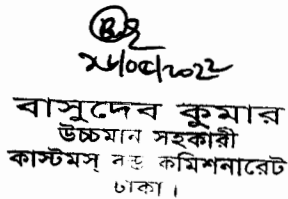 ২৮/০৫/২০২২
বাসুদেব কুমার
উচ্চমান সহকারী
কাস্টমস্ বন্ড কমিশনারেট
ঢাকা ।